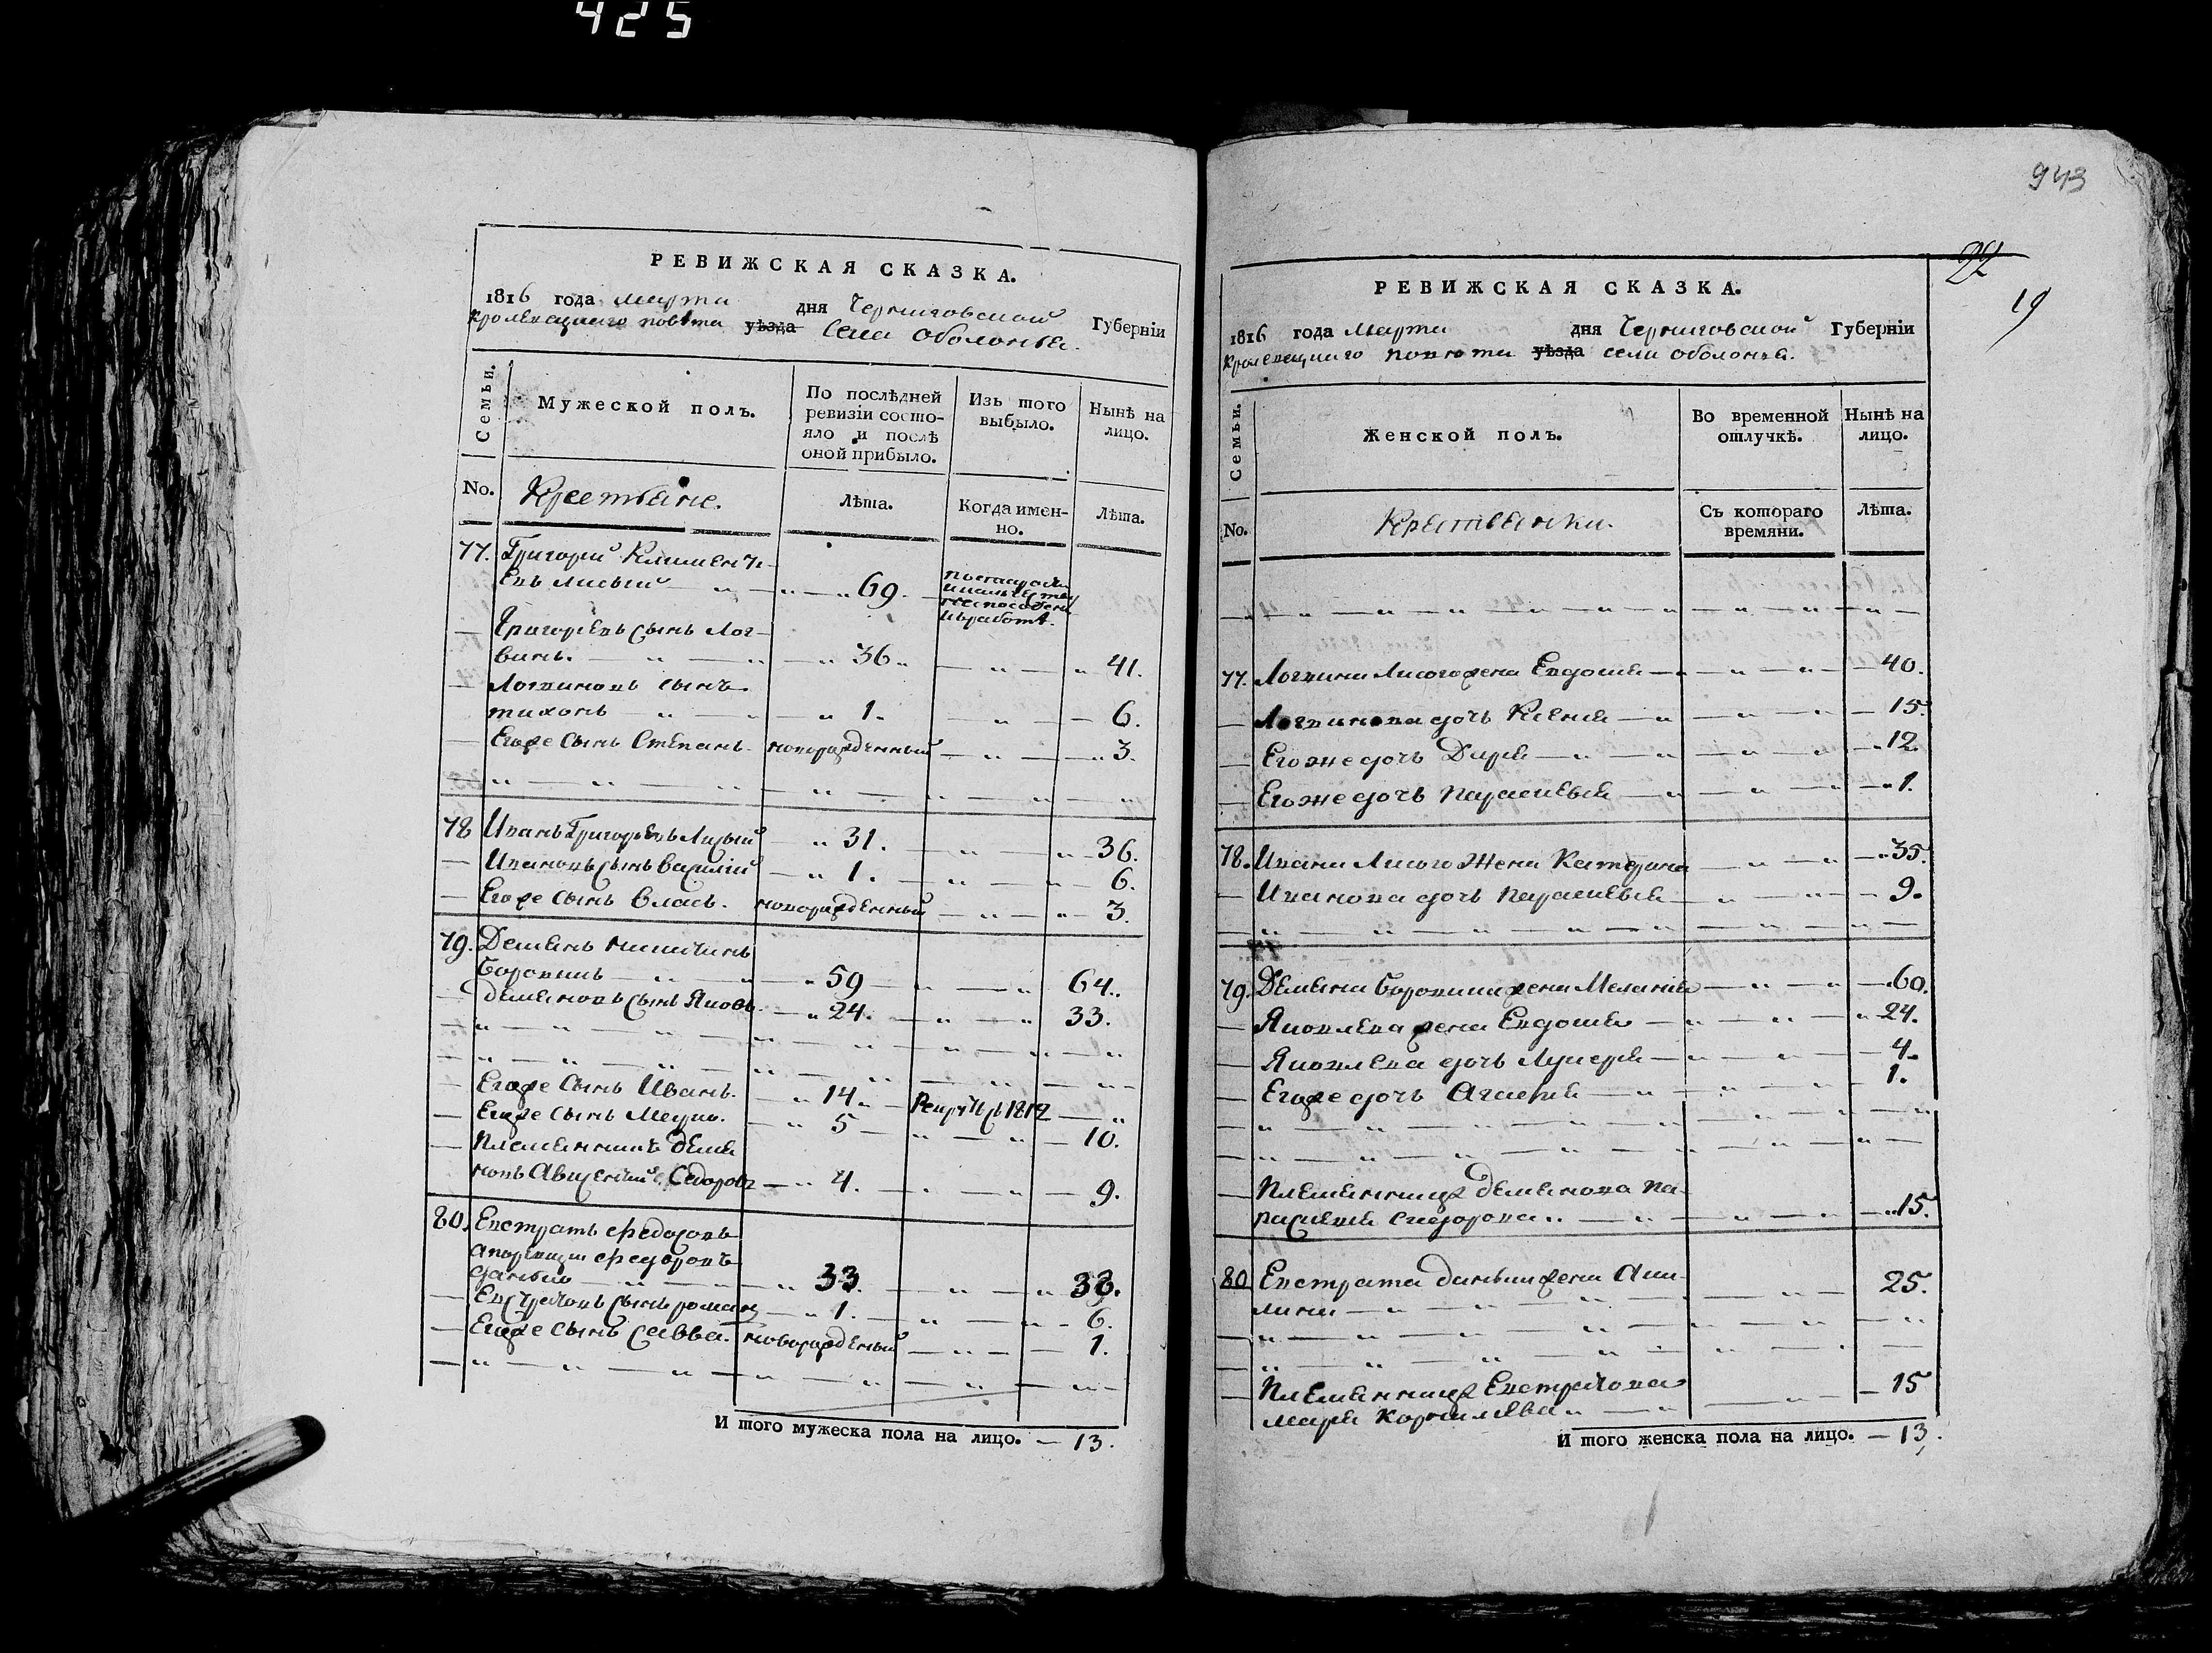 425
РЕВИЖСКАЯ СКАЗКА.
1816 года марта дня Черниговской Губерніи
Кролевецкаго повѣта уѣзда села Оболонья.
Семьи.
Мужеской полъ.
По послѣдней ревизіи состояло и послѣ оной прибыло.
Изъ того выбыло.
Нынѣ на лицо.
No.
Крестьяне.
Лѣта.
Когда именно.
Лѣта.
77. Григорій
Лисый 69.
Григорьевъ сынъ Лог-
винъ. 36. 41.
Логвиновъ сынъ
Тихонъ 1. 6.
Егоже сынъ Степанъ. новорожденный 3.
78 Иванъ Григорьевъ Лисый 31. 36.
Ивановъ сынъ Василій 1. 6.
Егоже сынъ Власъ. новорожденный 3.
79. Демьянъ
59 64.
Демьяновъ сынъ Яковъ 24. 33.
Егоже сынъ Иванъ. 14. 1812
Егоже сынъ 5 10.
Племянникъ Демья
новъ Сидоровъ 4. 9.
80. Евстратъ Федоровъ
Федоровъ
33. 38.
Евстратовъ сынъ Романъ 1. 6.
Егоже сынъ Савва. новорожденный 1.
И того мужеска пола на лицо. — 13.
943
22
19
РЕВИЖСКАЯ СКАЗКА.
1816 года Марта дня Черниговской Губерніи
Кролевецкаго повета уѣзда села Оболонья.
Семьи.
Женской полъ.
Во временной отлучкѣ.
Нынѣ на лицо.
No.
Крестьянки.
Съ котораго времяни.
Лѣта.
77. Логвина Лисого жена Евдокия 40.
Логвинова дочь Ксения 15.
Егоже дочь Дарья 12.
Егоже дочь Параскевья 1.
78. Ивана Лисого жена Катерина 35.
Иванова дочь Параскевья 9.
79. Демьяна жена Мелания 60.
Яковлева жена Евдокия 24.
Яковлева дочь Лукерья 4.
Егоже дочь Агафия 1.
Племянница Демьянова Па-
раскевия Сидорова 15.
80 Евстрата жена Аку-
лина 25.
Племянница Евстратова
Марья 15
И того женска пола на лицо. — 13.